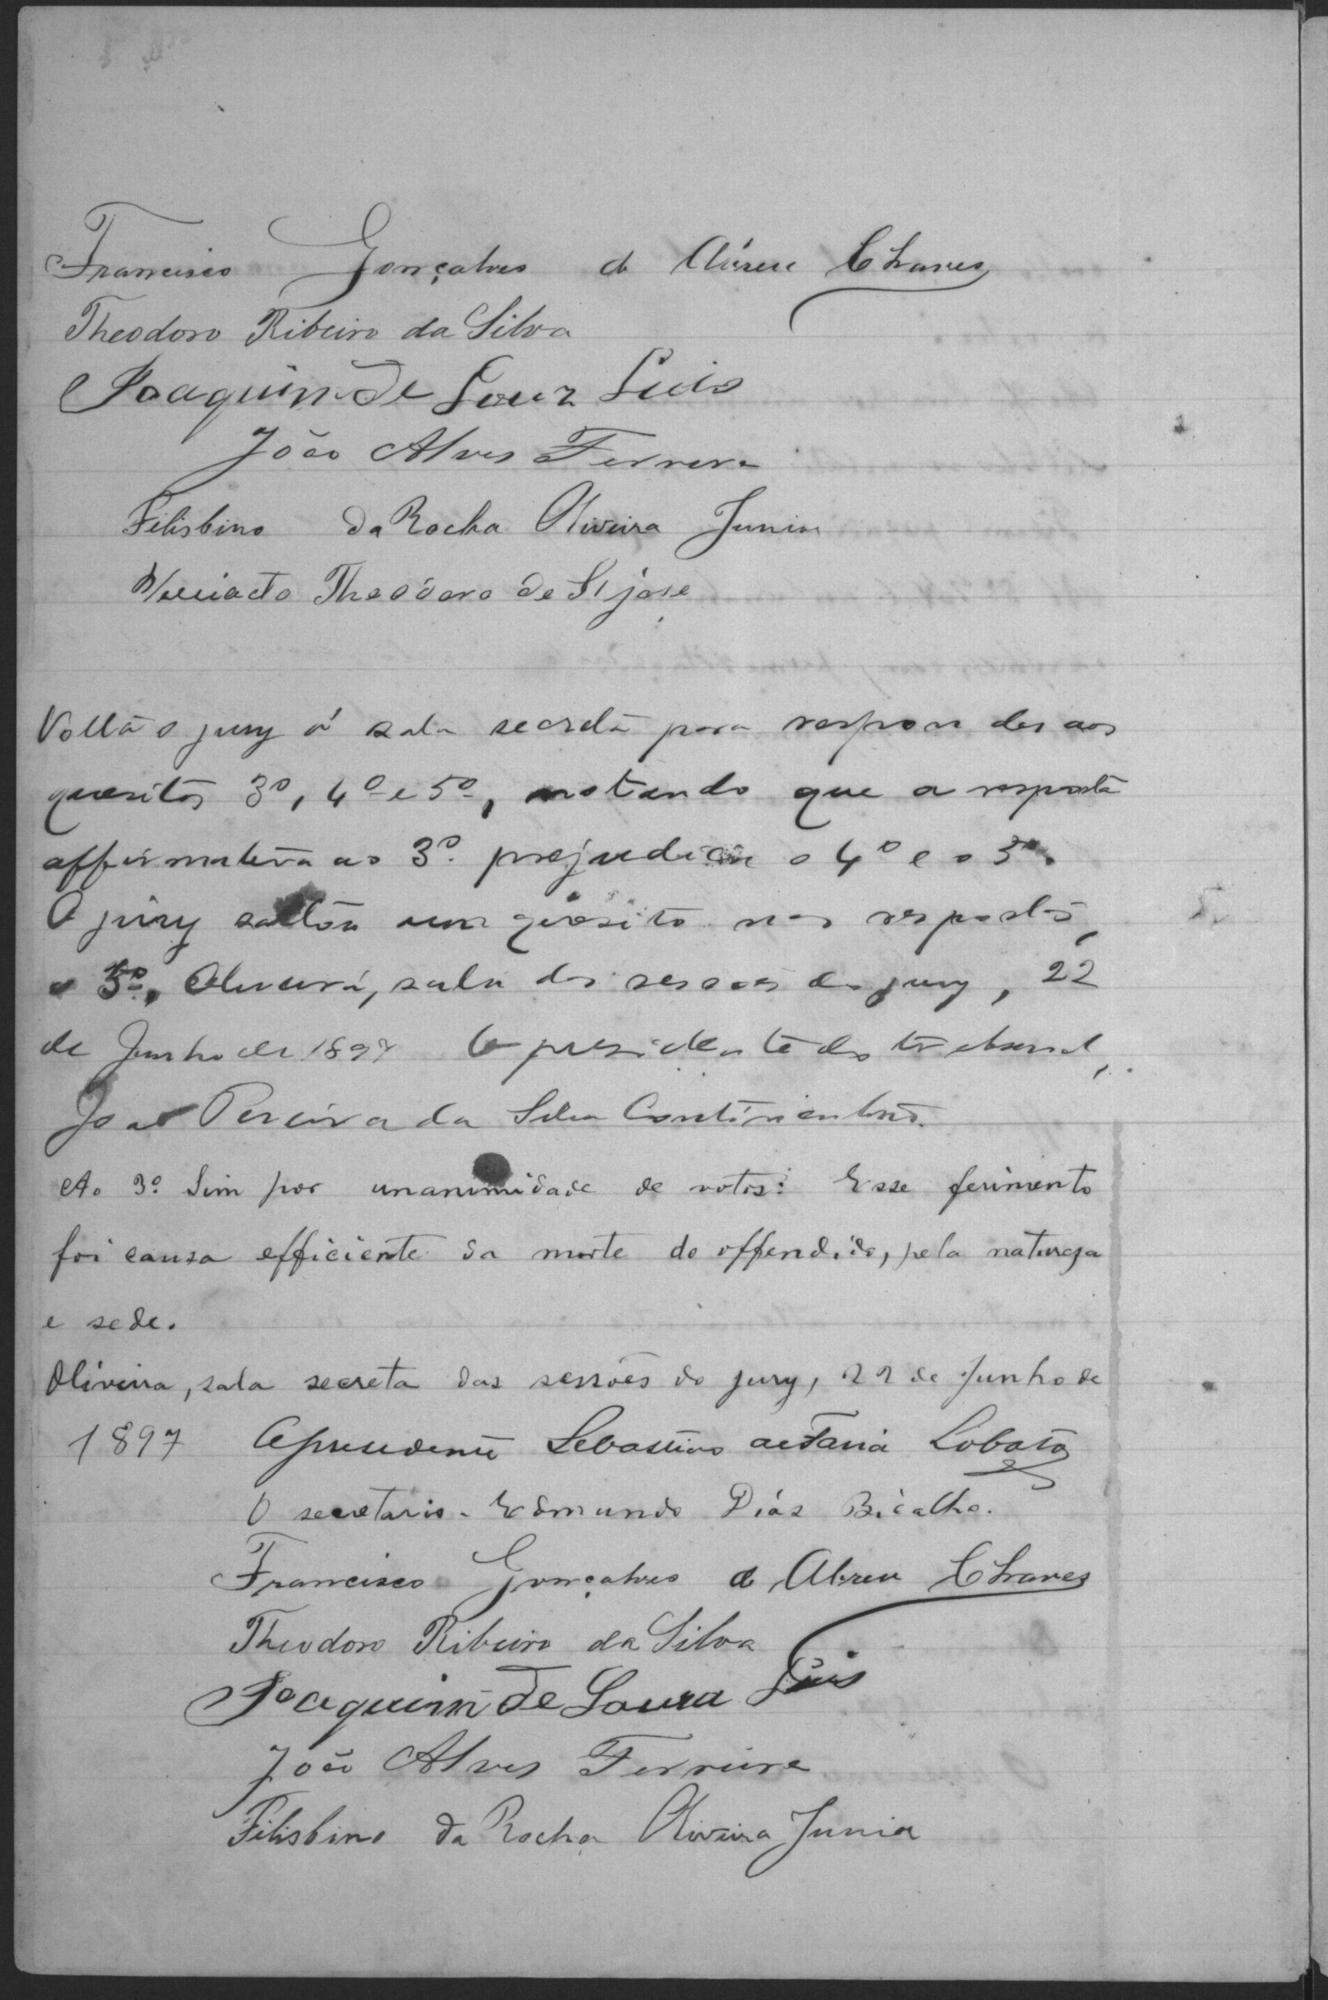 Francisco Gonçalves de Abreu Chaves
Theodoro Ribeiro da Silva
Joaquim de Souz Luis
João Alves Ferrera
Filisbino da Rocha Oliveira Junior
Theodoro de S. José
Volta o jury á sala secreta para responder aos
quesitos 3º, 4º e 5º, notando que a resposta
affirmativa ao 3º prejudica o 4º e o 5º.
O jury saltou um quesito nas respostas,
o 3º, Oliveira, sala das sessões do jury, 22
de Junho de 1897 O presidente do tribunal,
João Pereira da Silva Continentino.
Ao 3º Sim por unanimidade de votos: Esse ferimento
foi causa efficiente da morte do offendido, pela natureza
e sede.
Oliveira, sala secreta das sessões do jury, 22 de Junho de
1897 O presidente Sebastião de Faria Lobato
O secretario - Edmundo Dias Bicalho.
Francisco Gonçalves de Abreu Chaves
Theodoro Ribeiro da Silva
Joaquim de Souza Luis
João Alves Ferreira
Filisbino da Rocha Oliveira Junior